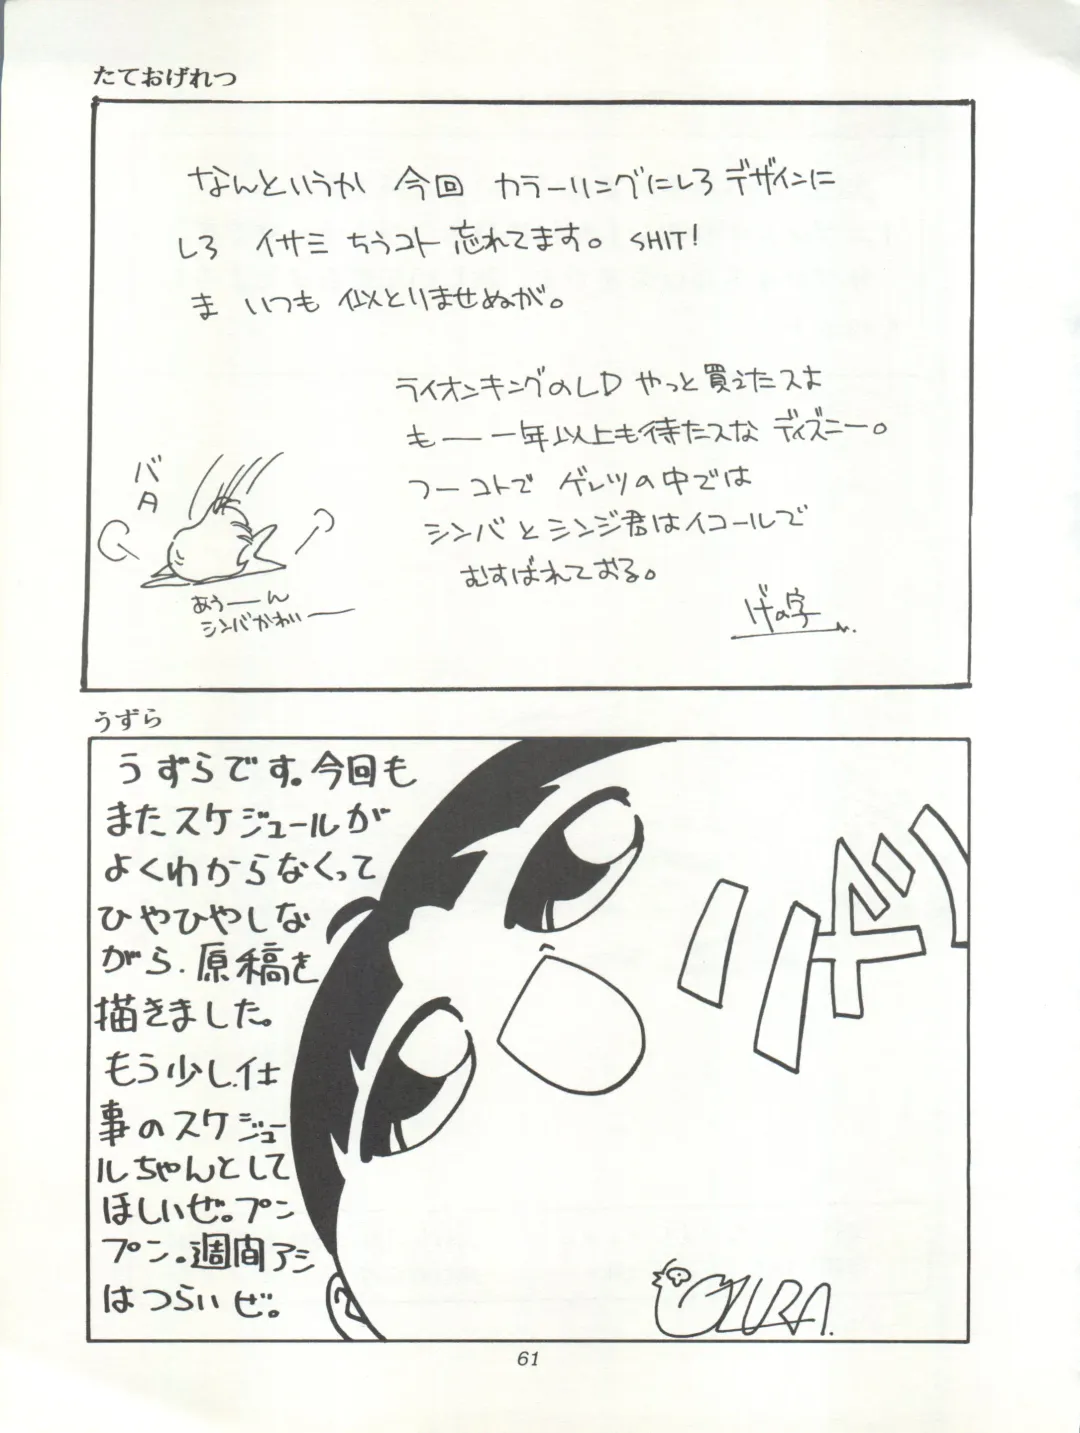 たておげれつ
なんというか 今回 カラーリングにしろ デザインに
しろ イサミ ちうコト 忘れてます。 SHIT!
ま いつも 似とりませぬが。
ライオンキングのLD やっと買えたスよ
も——一年以上も待たスな ディズニー。
つーコトで ゲレツの中では
シンバとシンジ君はイコールで
むすばれておる。
バタ
あぅ——ん
シンバかわい——
げの字
うずら
うずらです。今回も
またスケジュールが
よくわからなくって
ひやひやしな
がら、原稿を
描きました。
もう少し、仕
事のスケジュー
ルちゃんとして
ほしいぜ。プン
プン。週間アシ
はつらいぜ。
UZURA.
61